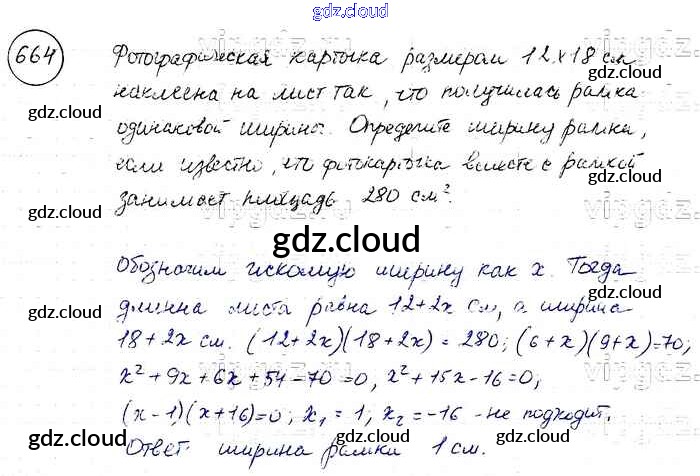 gdz.cloud
664
Фотографическая карточка размером 12×18 см
наклеена на лист так, что получилась рамка
одинаковой ширины. Определите ширину рамки,
если известно, что фотокарточка вместе с рамкой
занимает площадь 280 см².
Обозначим искомую ширину как x. Тогда
длинна листа равна 12+2x см, а ширина
18+2x см. (12+2x)(18+2x) = 280; (6+x)(9+x)=70;
x²+9x+6x+54-70=0, x²+15x-16=0;
(x-1)(x+16)=0; x₁=1, x₂=-16 -не подходит.
Ответ ширина рамки 1 см.
gdz.cloud
gdz.cloud
gdz.cloud
gdz.cloud
gdz.cloud
gdz.cloud
gdz.cloud
gdz.cloud
gdz.cloud
gdz.cloud
gdz.cloud